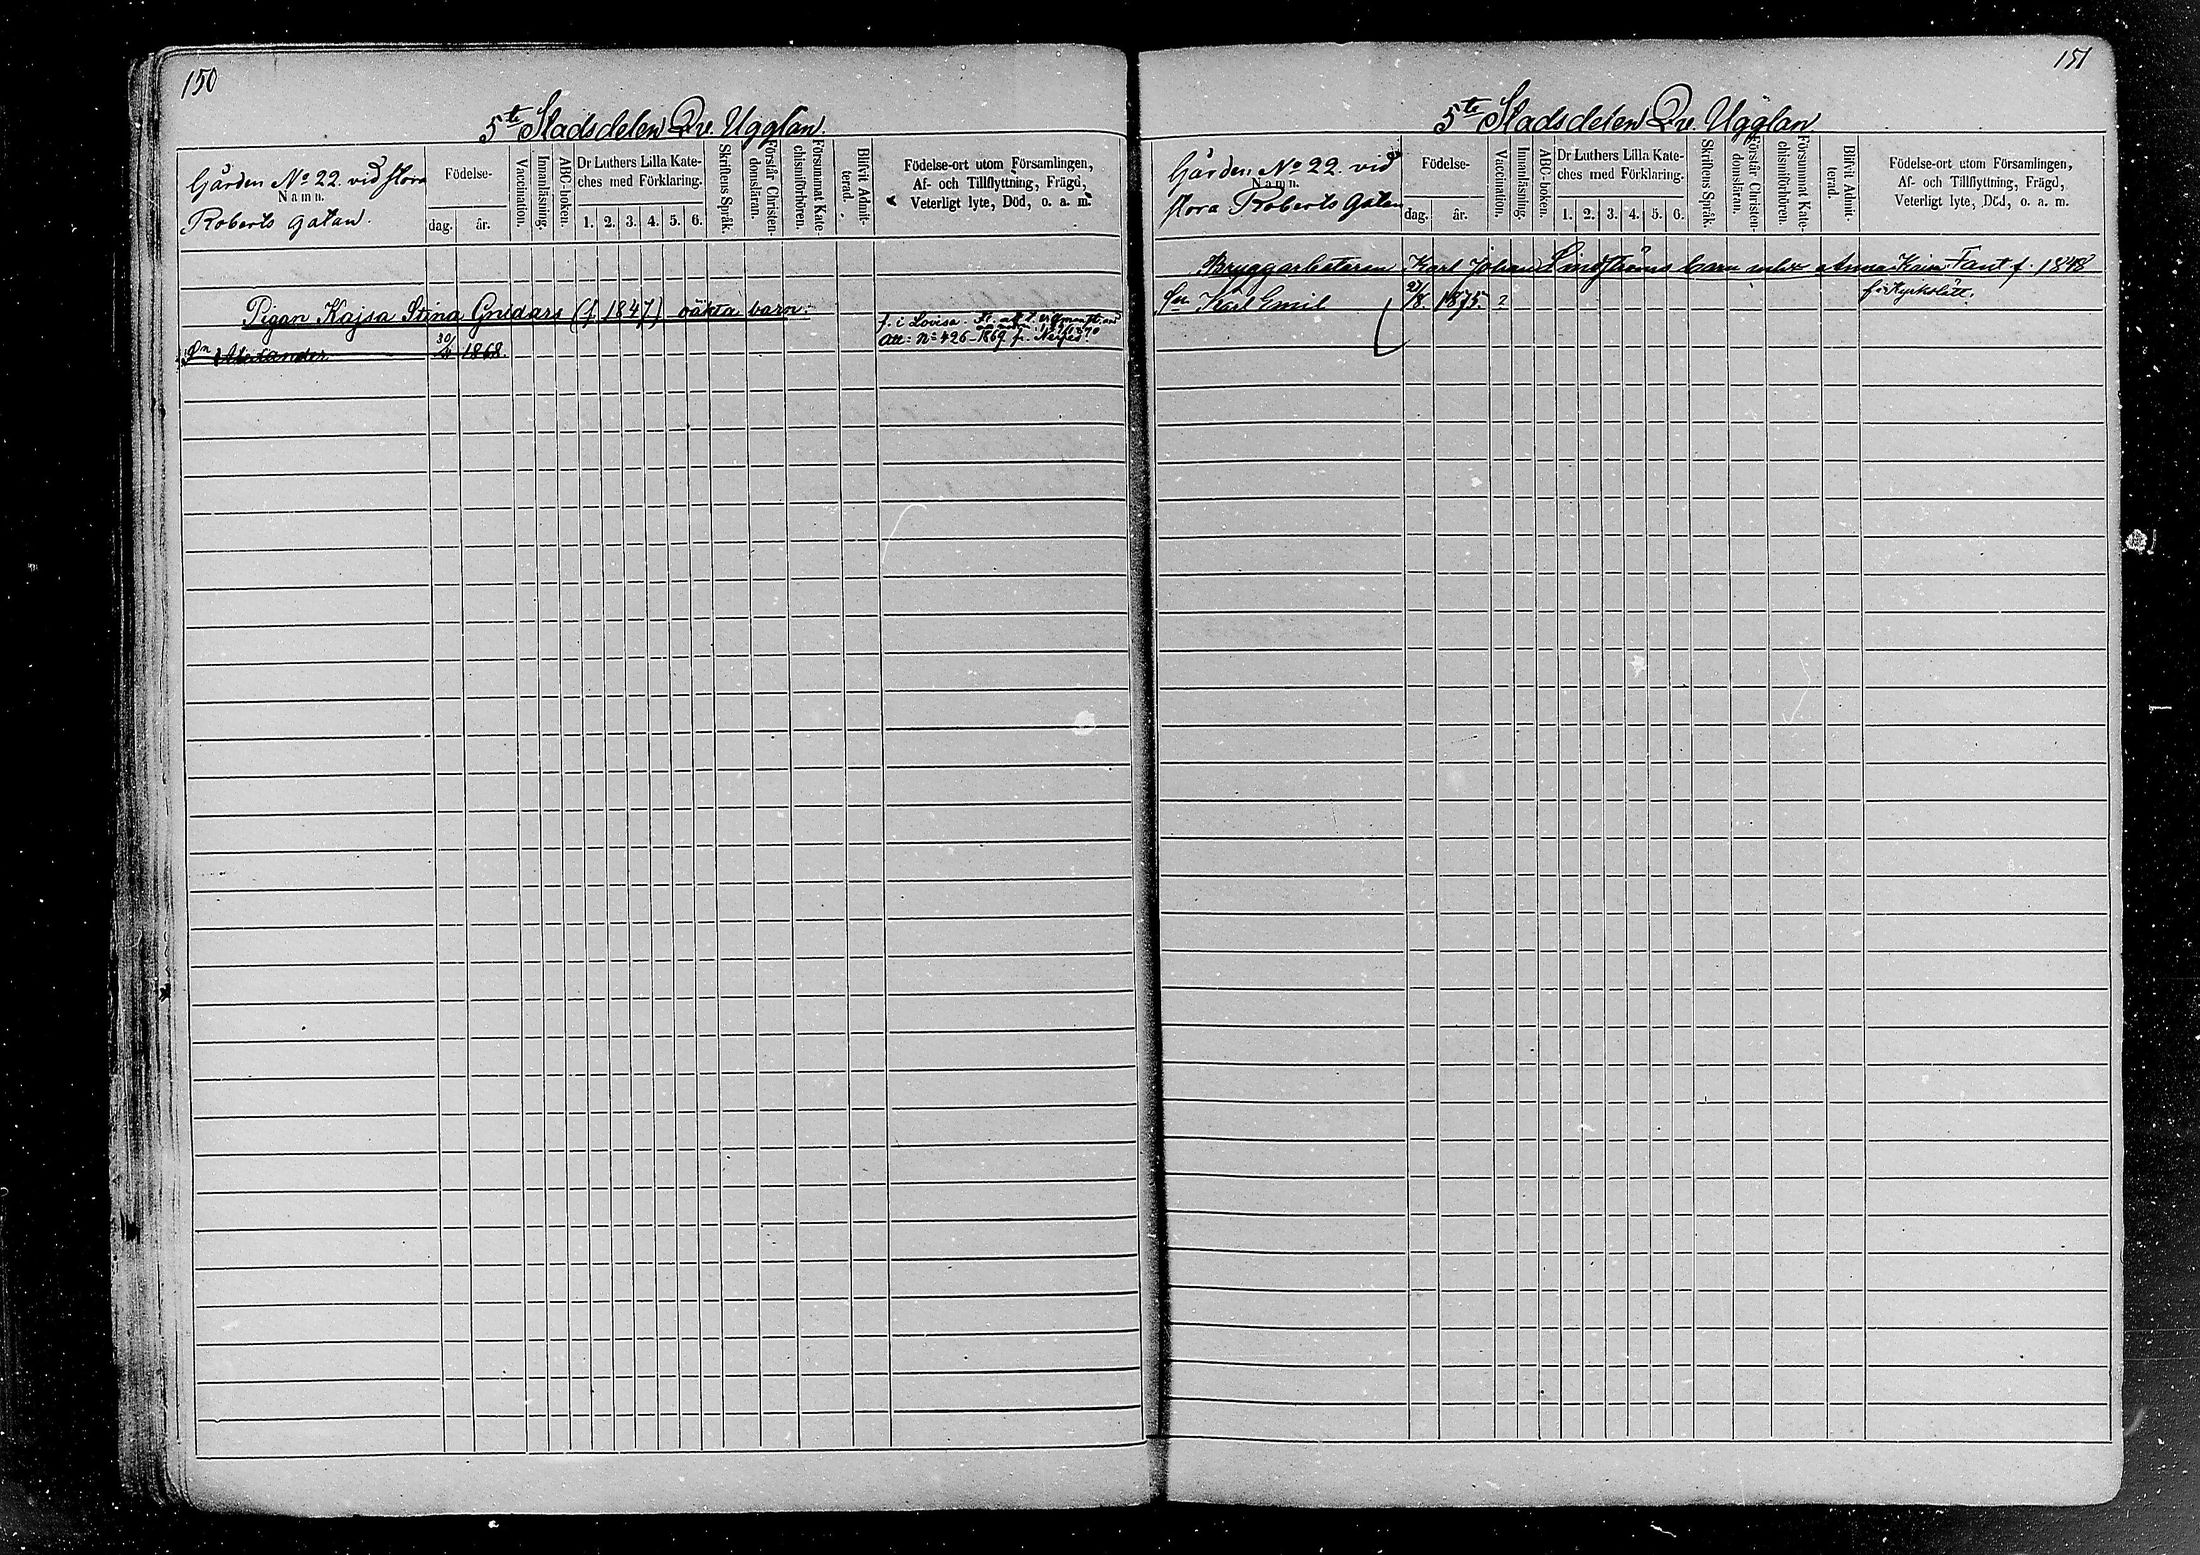 150
5te Stadsdelen Qv. Ugglan.
Gården No 22. vid stora
Namn.
Roberts gatan.
Födelse-
dag. år.
Vaccination.
Innanläsning.
ABC-boken.
Dr Luthers Lilla Kate-
ches med Förklaring.
1. 2. 3. 4. 5. 6.
Skriftens Språk.
Förstår Christen-
domsläran.
Försummat Kate-
chismiförhören.
Blifvit Admit-
terad.
Födelse-ort utom Församlingen,
Af- och Tillflyttning, Frägd,
Veterligt lyte, Död, o. a. m.
Pigan Kajsa Stina Gnidars (f. 1847) oäkta barn:
f. i Lovisa.
att: No 426 1869 fr.
Sn Alexander 30/4 1868.
151
5te Stadsdelen Qv. Ugglan
Gården No 22. vid
Namn.
stora Roberts gatan
Födelse-
dag. år.
Vaccination.
Innanläsning.
ABC-boken.
Dr Luthers Lilla Kate-
ches med Förklaring.
1. 2. 3. 4. 5. 6.
Skriftens Språk.
Förstår Christen-
domsläran.
Försummat Kate-
chismiförhören.
Blifvit Admit-
terad.
Födelse-ort utom Församlingen,
Af- och Tillflyttning, Frägd,
Veterligt lyte, Död, o. a. m.
Bryggarbetaren Karl Johan Lindströms barn Anna Fant f. 1848
f. i Kyrkslätt.
Sn Karl Emil 1875. ?